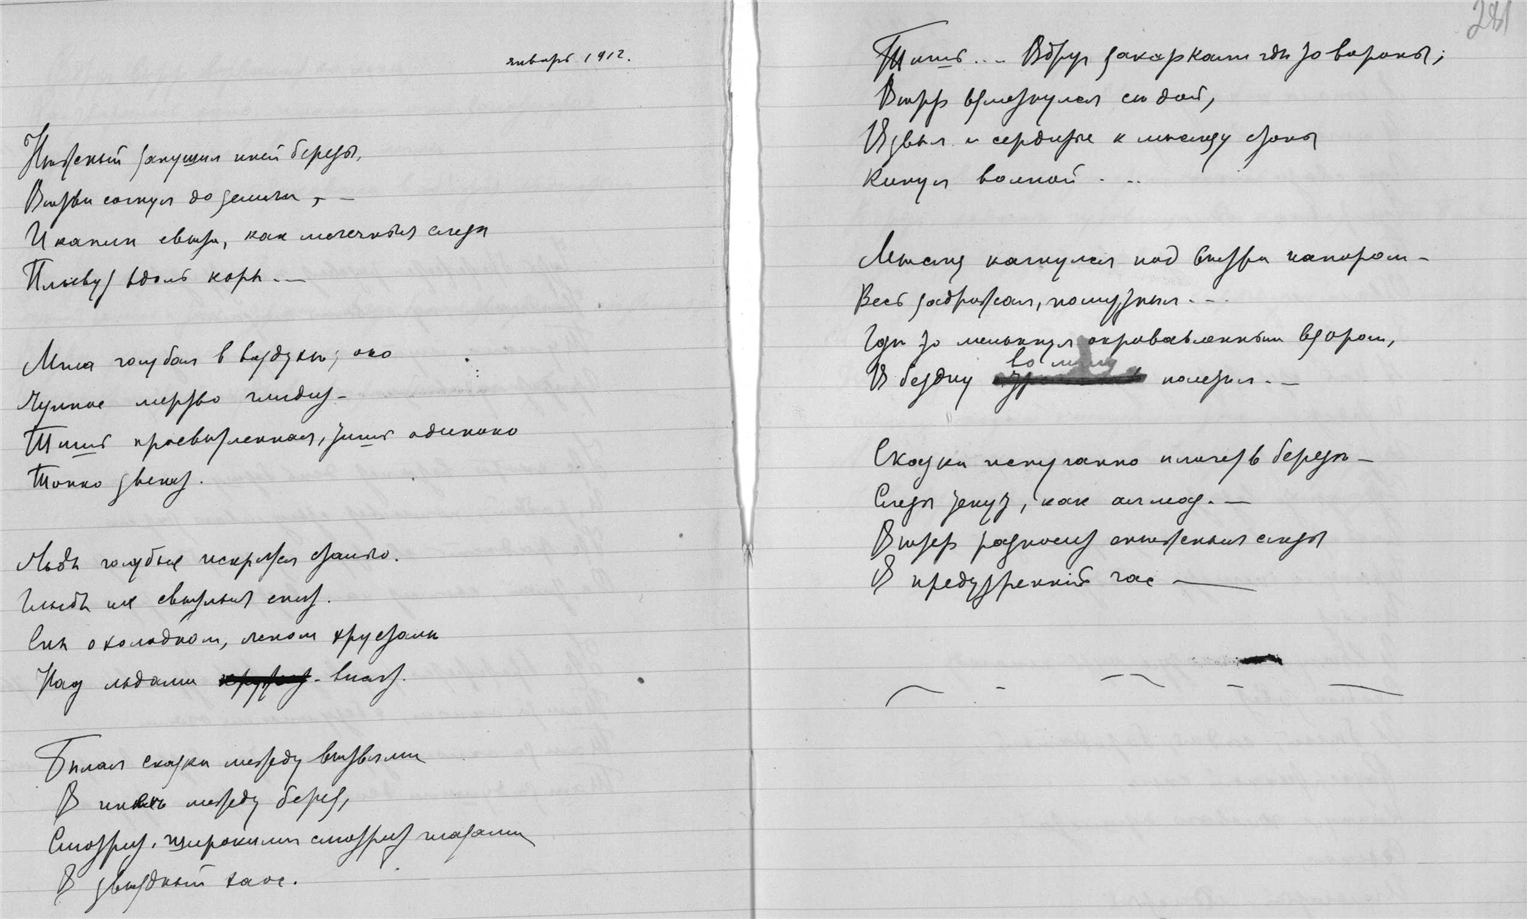 январь 1912.
Нѣжный запушил иней березы,
Вѣтви согнул до земли, –
И капли свѣта, как млечныя слезы
Плывут вдоль коры. —
Мгла голубая в воздухѣ; око
Лунное мертво глядит –
Тишь просвѣтленная, тишь одиноко
Тонко звенит.
Льды голубые искрятся сталью.
Глыбы их свѣтлыя спят.
Сны о холодном, легком хрусталѣ
Над льдами висят.
Бѣлая сказка между вѣтвями
В инеѣ между берез,
Смотрит, широкими смотрит глазами
В звѣздный хаос.
281
Тишь .... Вдруг закаркали гдѣ то вороны;
Вѣтр взметнулся сѣдой,
Взвыл и сердитые к мѣсяцу стоны
Кинул волной . ..
Мѣсяц качнулся под вѣтра напором –
Весь задрожал, помутнѣл. ..
Гдѣ то мелькнул окровавленным взором,
В бездну во мглу полетѣл. —
Сказки испуганно плачет в березѣ –
Слезы текут, как алмаз. —
Вѣтер разносит снѣжныя слезы
В предутренній час —